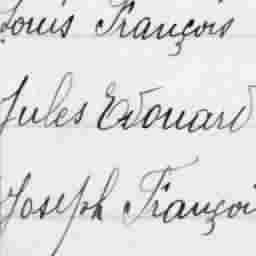 Louis François
Jules Edouard
Joseph Françoi